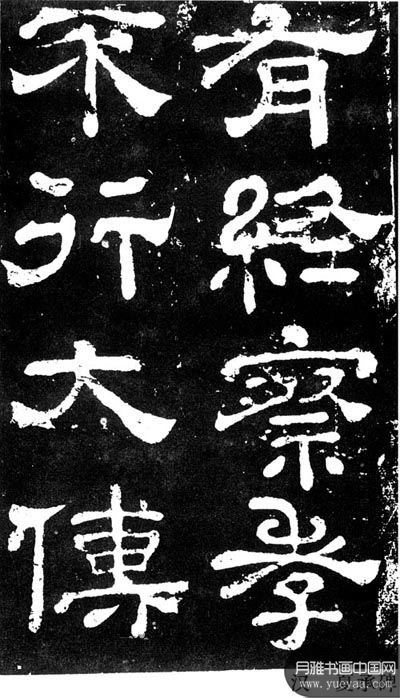 有終察孝
不行大傅
月雅书画中国网
www.yueyaa.com